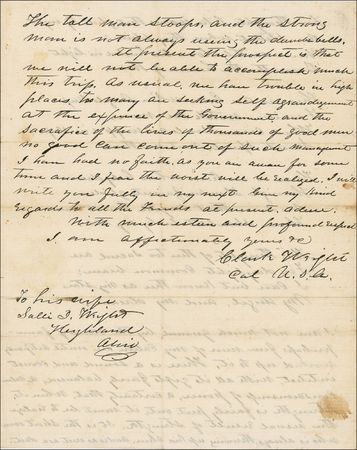 The tall man stoops, and the strong
man is not always using the dumbe bells,
At present the prospect is that
we will not be able to accomplish much
this trip. As usual, we have trouble in high
places, too many are seeking self agrandizement
at the expence of the Government, and the
Sacrafice of the lives of thousands of good men
no good can come out of such managment
I have had no faith, as you are aware for some
time and I fear the worst will be realized. I will
write you fully in my next Give my kind
regards to all the friends at present. Adieu.
With much esteem and profound respect
I am affectionately yours &c
Clark Wright
Col U.S.A.
To his wife
Sallie I. Wright
Highland
Ohio